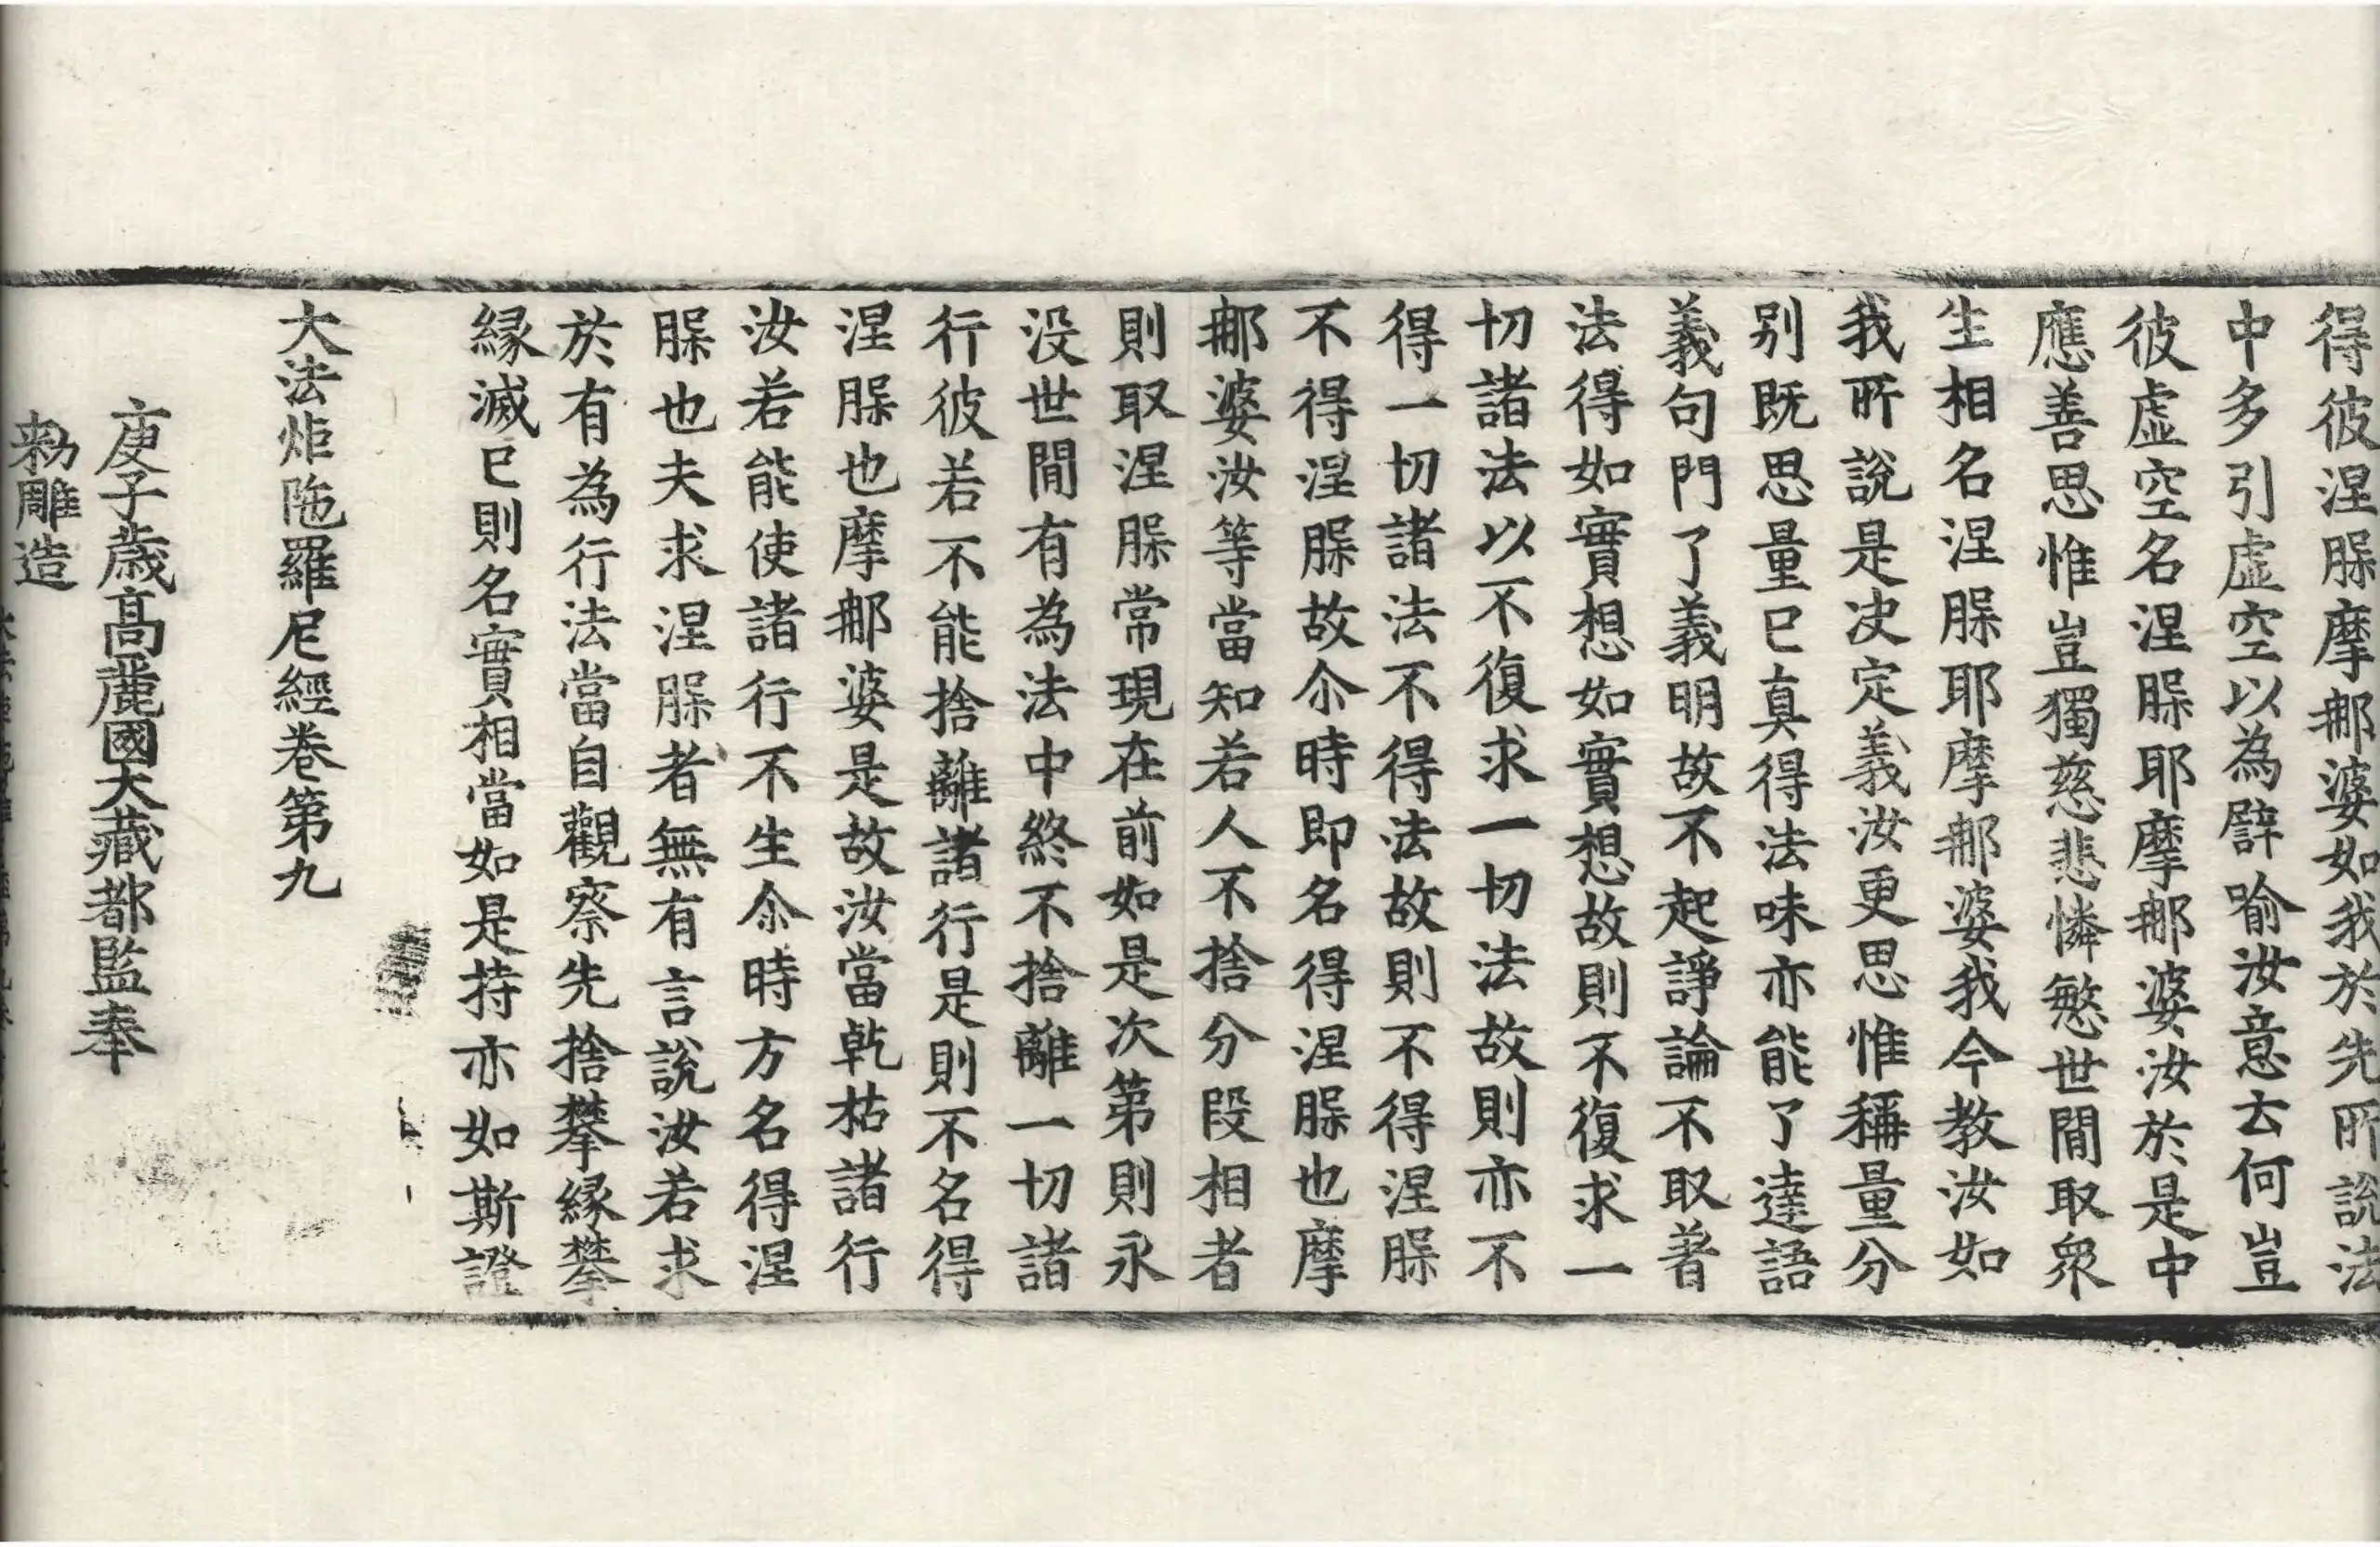 得彼涅槃摩那婆如我於先所說法
中多引虛空以為譬喻汝意云何豈
彼虛空名涅槃耶摩那婆汝於是中
應善思惟豈獨慈悲憐愍世間取衆
生相名涅槃耶摩那婆我今教汝如
我所說是决定義汝更思惟稱量分
別既思量已真得法味亦能了達語
義句門了義明故不起諍論不取著
法得如實想如實想故則不復求一
切諸法以不復求一切法故則亦不
得一切諸法不得法故則不得涅槃
不得涅槃故尒時即名得涅槃也摩
那婆汝等當知若人不捨分段相者
則取涅槃常現在前如是次第則永
没世間有為法中終不捨離一切諸
行彼若不能捨離諸行是則不名得
涅槃也摩那婆是故汝當乹枯諸行
汝若能使諸行不生尒時方名得涅
槃也夫求涅槃者無有言說汝若求
於有為行法當自觀察先捨攀緣攀
緣滅已則名實相當如是持亦如斯證
大法炬陁羅尼經卷第九
庚子歲高麗國大藏都監奉
勑雕造